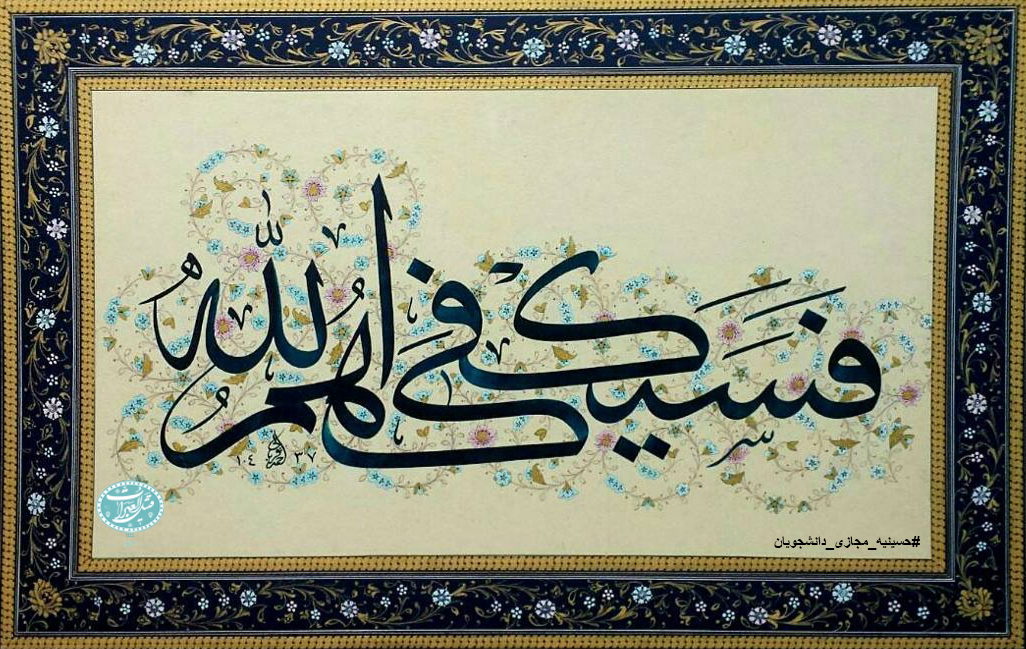 فَسَيَكْفِيكَهُمُ اللَّهُ
١٤٣٧
#حسینیه_مجازی_دانشجویان